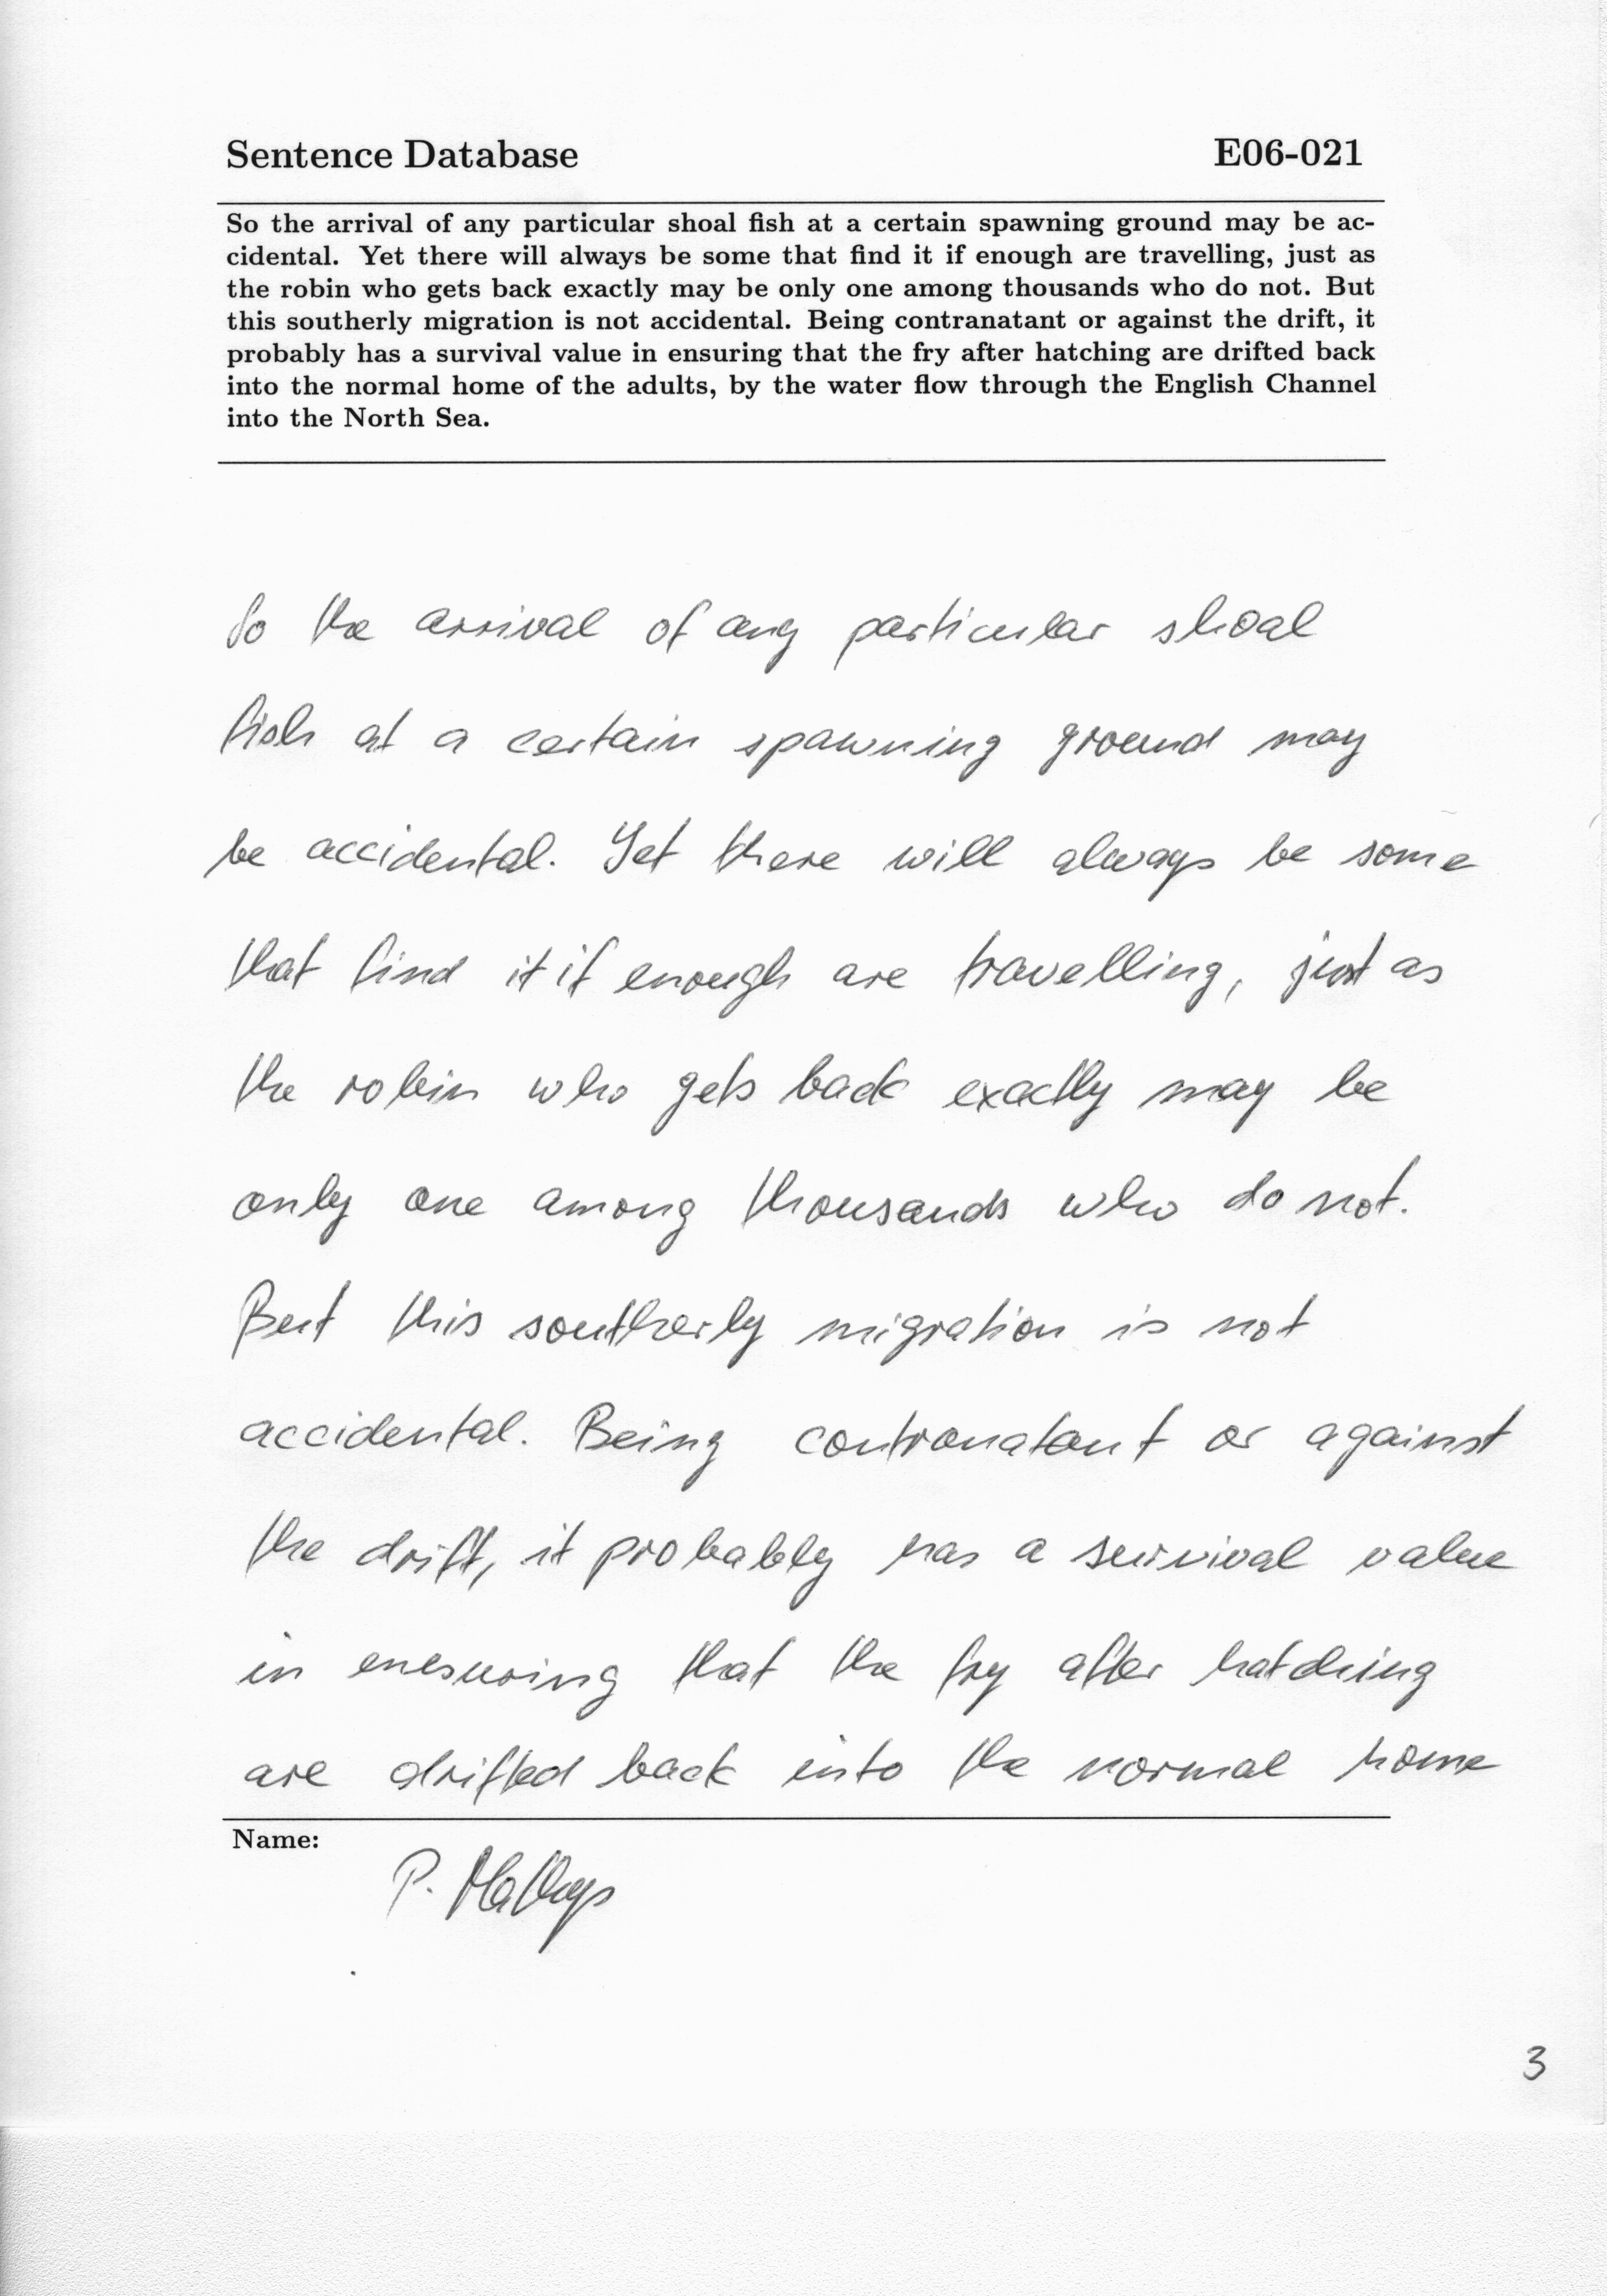 Sentence Database E06-021
So the arrival of any particular shoal fish at a certain spawning ground may be ac-
cidental. Yet there will always be some that find it if enough are travelling, just as
the robin who gets back exactly may be only one among thousands who do not. But
this southerly migration is not accidental. Being contranatant or against the drift, it
probably has a survival value in ensuring that the fry after hatching are drifted back
into the normal home of the adults, by the water flow through the English Channel
into the North Sea.
So the arrival of any particular shoal
fish at a certain spawning ground may
be accidental. Yet there will always be some
that find it if enough are travelling, just as
the robin who gets back exactly may be
only one among thousands who do not.
But this southerly migration is not
accidental. Being contranatant or against
the drift, it probably has a survival value
in enesuring that the fry after hatching
are drifted back into the normal home
Name:
P. Mathys
3